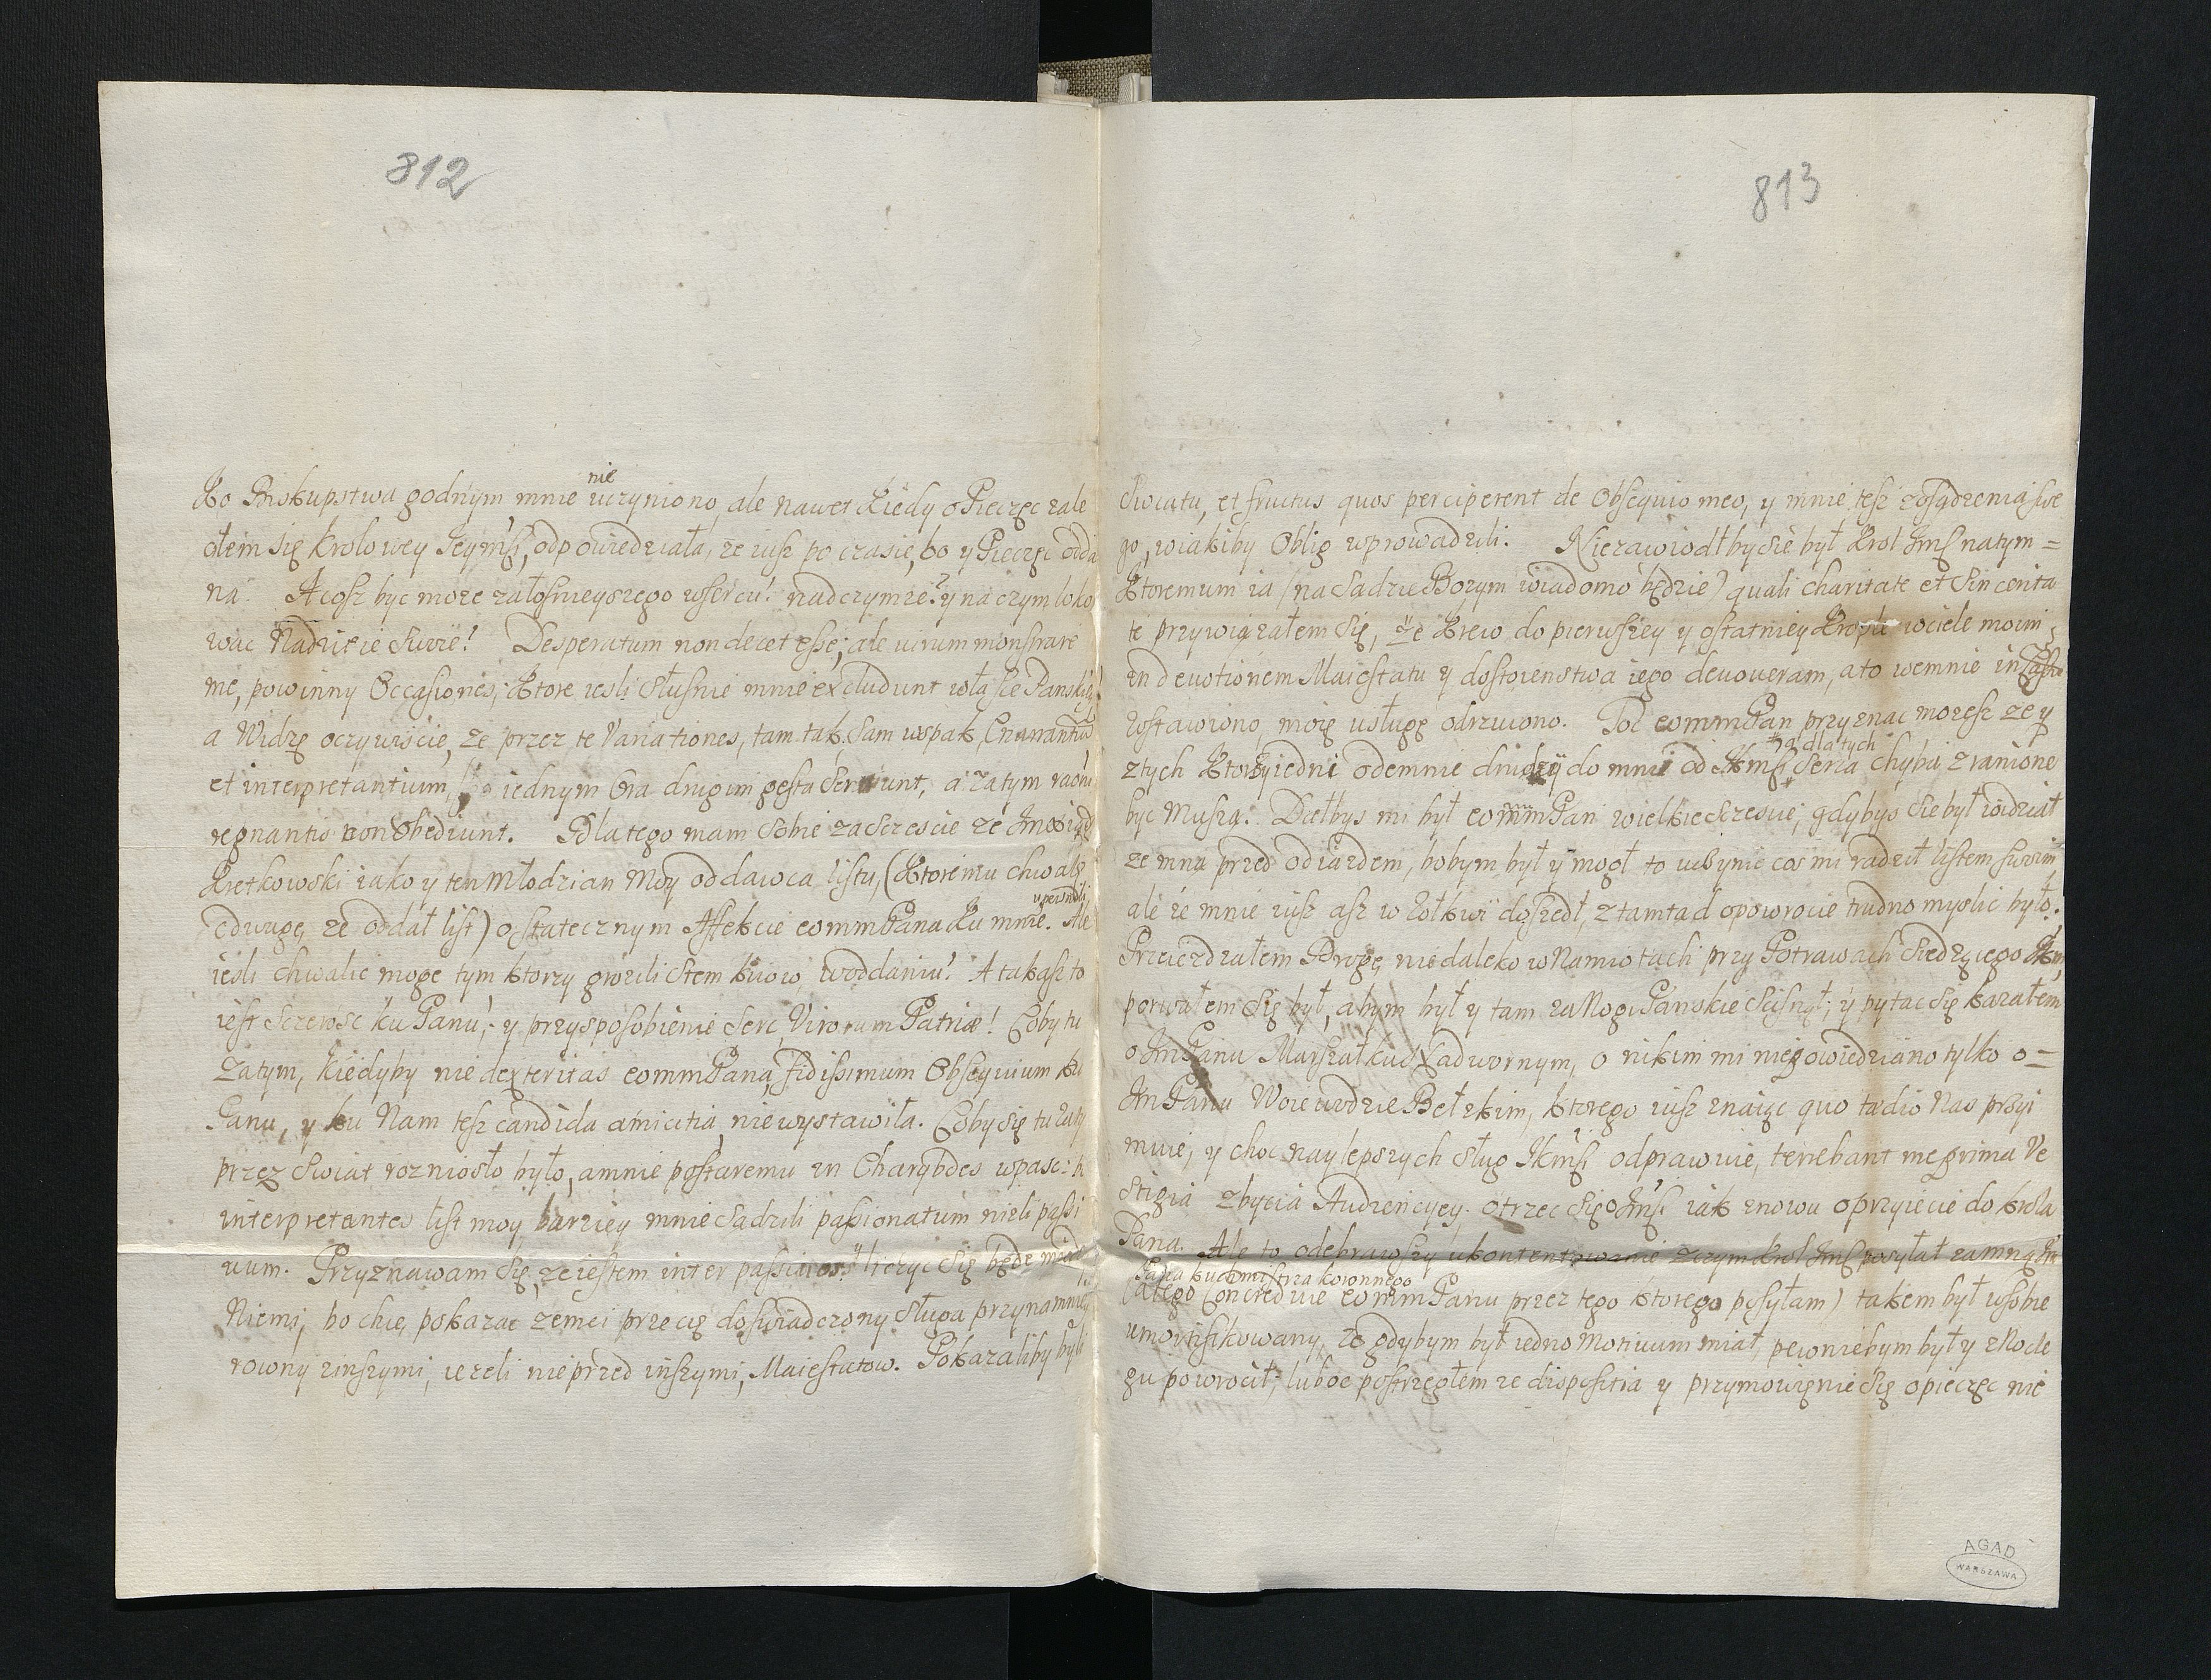 812
nie
ko Biskupstwa godnym mnie uczyniono, ale nawet kiedy o Pieczęc zale
ołem się krolowey Jeymsi, odpowiedziała, ze iusz po czasie, bo y Pieczęc odda
na. A cosz byc moze załosnieyszego w sercu? nad czymze? y na czym loko
wac Nadzieie swoie! Desperatum non decet esse; ale virum monstrare
me, powinny Occasiones; ktore iesli słusnie mnie excludunt w łasce Panskiey
a Widzę oczywiscie, ze przez te Variationes, tam tak. Sam wspak,
et interpretantium, iednym Ora drugim gesta serviunt, a zatym
regnantis non obediunt. Dlatego mam sobie za szczescie ze
Kretkowski iako y ten Młodzian Moy oddawca listu, (ktoremu chwalę
upewnili
odwagę, ze oddał list) o statecznym Affekcie eommPana ku mnie. Ale
iesli chwalic moge tym ktorzy grozili Stem kiiow, w oddaniu? A takasz to
iest sczerosc ku Panu, y przysposobienie serc, Virorum Patriæ! Coby tu
Zatym, kiedyby nie dexteritas eommPana, fidissimum Obsequium ku
Panu, y ku Nam tesz candida amicitia, nie wystawiła. Coby się tu zaty
przez swiat rozniosło było, a mnie postaremu in Charybdes wpasc: b
interpretantes list moy, barziey mnie sądzili passionatum nieli passi
uum. Przyznawam się, ze iestem inter passiuos, liczyc się będe między
Niemi, bo chcę pokazac zemci przecię doswiadczony Sługa przynamniey
rowny z inszymi, iezeli nie przed inszymi, Maiestatow. Pokazaliby byli
813
Ciocatu, et fructus quos perciperent de Obsequio meo, y mnie tesz z osądzenia swe
go, w iakiby Oblig wprowadzili. Niezawiodłby sie był Krol Jmsc na tym=
Ktoremum ia (na sadzie Bozym wiadomo będzie) quali charitate et sincerita
te przywiązałem się, ze krew do pierwszey y ostatniey kropli w ciele moim;
in deuotionem Maiestatu y dostoienstwa iego deuoueram, a to we mnie
zostawiono, moię usługę odrzucono. Toc eommPan przyznac mozesz ze y
a dla tych
z tych ktorzy iedni odemnie drudzy do mnie od Jkmsi seria chyba zranione
byc Muszą. Dałbys mi był eommPan wielkie sczescie, gdybys sie był widział
ze mną przed odiazdem, bobym był y mogł to uczynic cos mi radził listem swoim
ale ze mnie iusz asz w Zołkwi doszedł, z tamtad o powrocie trudno myslic było.
Przeiezdzałem Drogę niedaleko w Namiotach przy Potrawach siedzącego
porwałem się był, abym był y tam za Nogi Panskie scisnął; y pytac się kazałem
o JmPanu Marszałku Nadwornym, o nikim mi nie powiedziano tylko o=
JmPanu Woiewodzie Bełzkim, ktorego iusz znaiąc quo tædio Nas przyi
muie, y choc naylepszych sług Jkmsi odprawuie, terrebant me prima Ve
stigia zbycia Audiencyey; otrzec się o Jmsi iak znowu o przyiecie do krola
Pana. Ale to odebrawszy ukontentowanie z czym Krol Jmsc posyłał zamną
Pana kuchmistrza koronnego
(a tego concreduie eommPanu przez tego ktorego posyłam) takem był w sobie
umortifikowany, ze gdybym był iedno Motiuum miał, pewniebym był y z Nocle
gu powrocił; luboc postrzegłem ze dispositia y przymowienie się o pieczęc nie
AGAD
WARSZAWA